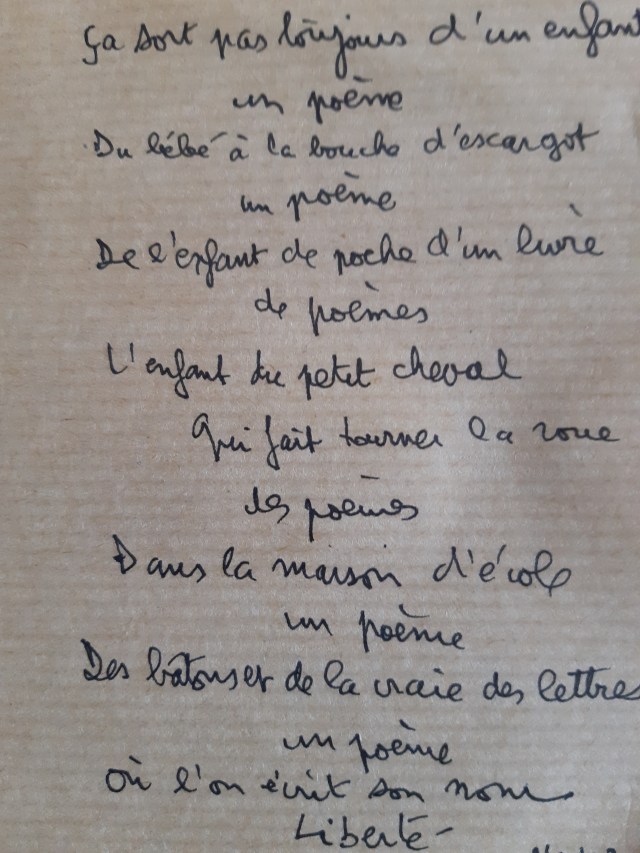 Ça sort pas toujours d'un enfant
un poème
Du bébé à la bouche d'escargot
un poème
De l'enfant de poche d'un livre
de poèmes
L'enfant du petit cheval
Qui fait tourner la roue
des poèmes
Dans la maison d'école
un poème
Des bâtons et de la craie des lettres
un poème
où l'on écrit son nom
Liberté -